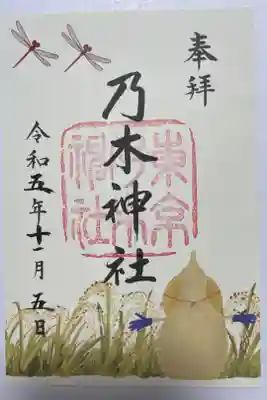 奉拝
乃木神社
東京
乃木
神社
令和五年十一月五日